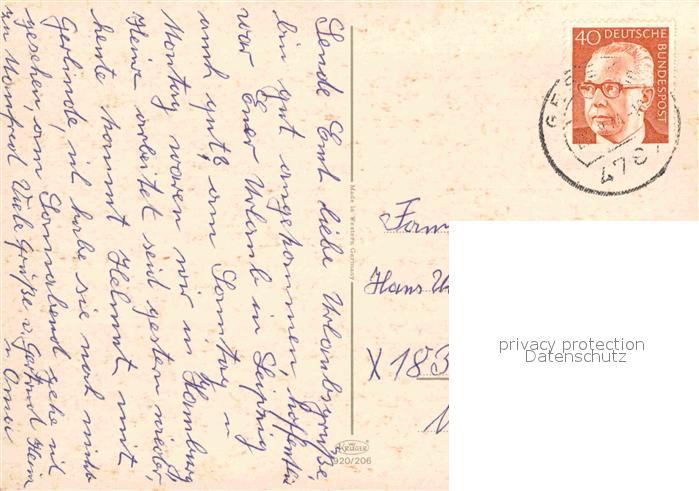 Sende Euch liebe Urlaubsgrüße,
bin gut angekommen, hoffentlich
war Euer Urlaub in Leipzig
auch gut, am Sonntag u
Montag waren wir in Hamburg
Heinz arbeitet seid gestern wieder,
heute kommt Helmut mit
Gerlinde, ich habe sie noch nicht
gesehen, am Sonnabend gehe ich
zu Manfred Viele Grüße v. Gertrud Hein
u Oma
40 DEUTSCHE BUNDESPOST
478
Made in Western Germany
Fam
Hans
X 183
KRÜGER
920/206
privacy protection
Datenschutz